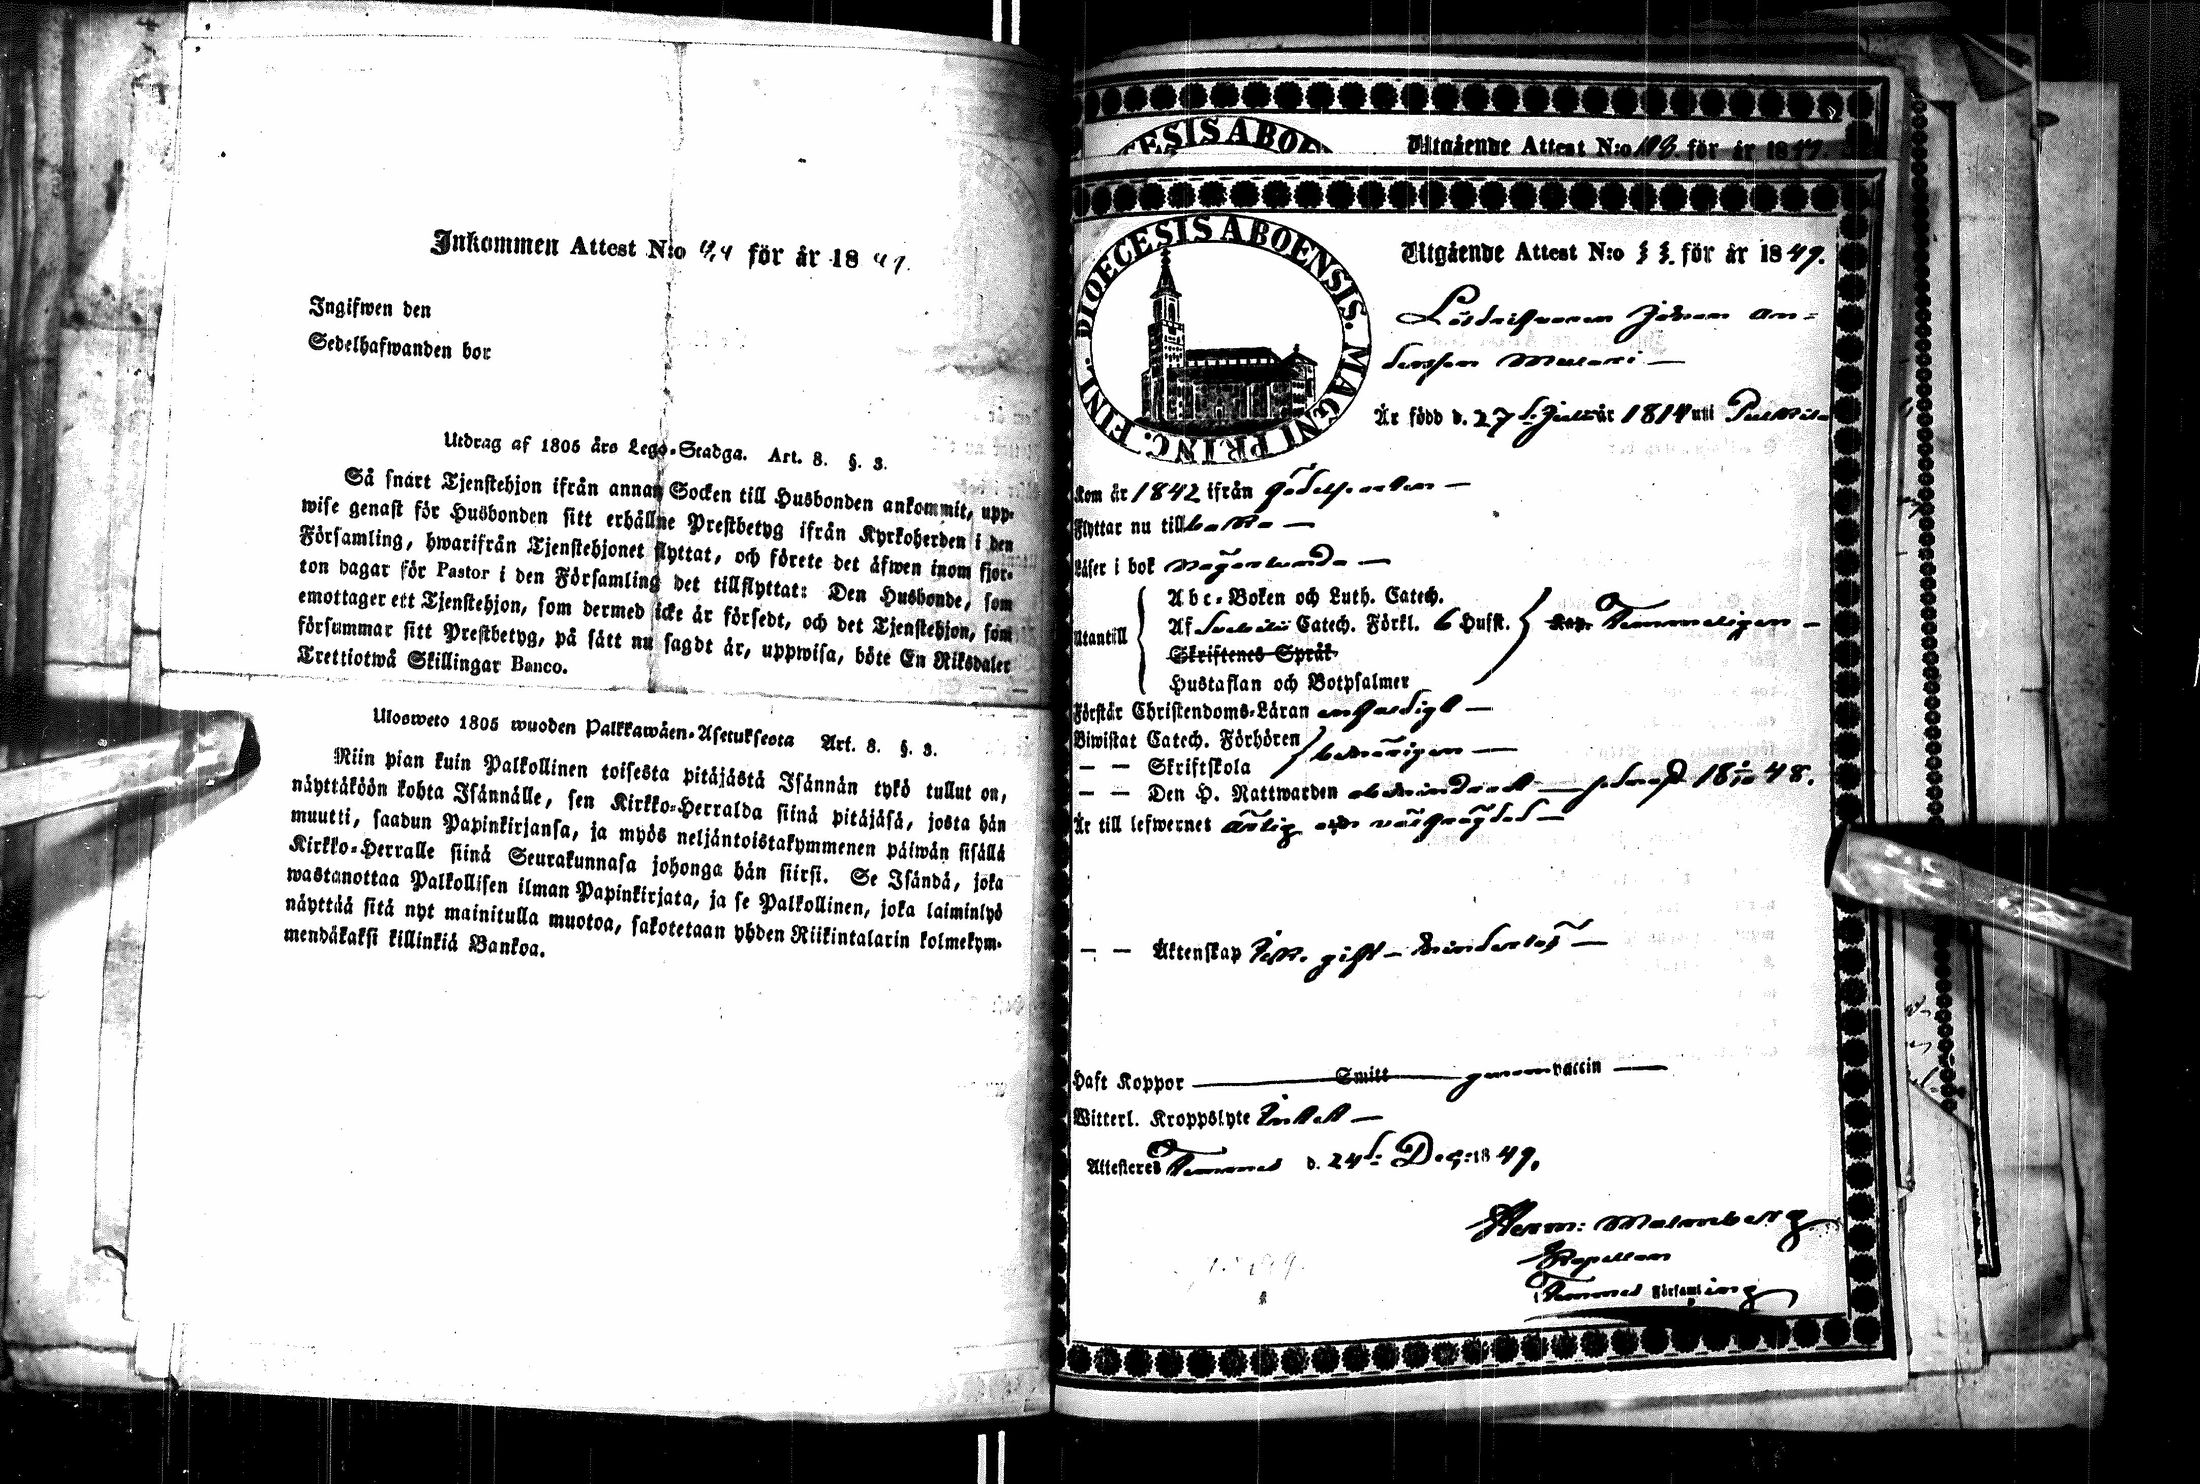 Inkommen Attest N:o för år 18
Ingifwen den
Sedelhafwanden bor
Utdrag af 1805 års Lego-Stadga. Art. 8. §. 3.
Så snart Tjenstehjon ifrån annan Socken till Husbonden ankommit, upp-
wise genast för Husbonden sitt erhållne Prestbetyg ifrån Kyrkoherden i den
Församling, hwarifrån Tjenstehjonet flyttat, och förete det äfwen inom fjor-
ton dagar för Pastor i den Församling det tillflyttat: Den Husbonde, som
emottager ett Tjenstehjon, som dermed icke är försedt, och det Tjenstehjon, som
försummar sitt Prestbetyg, på sätt nu sagdt är, uppwisa, böte En Riksdaler
Trettiotwå Skillingar Banco.
Ulosweto 1805 wuoden Palkkawäen-Asetuksesta Art. 8. §. 3.
Niin pian kuin Palkollinen toisesta pitäjästä Isännän tykö tullut on,
näyttäköön kohta Isännälle, sen Kirkko-Herralda siinä pitäjäsä, josta hän
muutti, saadun Papinkirjansa, ja myös neljäntoistakymmenen päiwän sisällä
Kirkko-Herralle siinä Seurakunnasa johonga hän siirsi. Se Isändä, joka
wastanottaa Palkollisen ilman Papinkirjata, ja se Palkollinen, joka laiminlyö
näyttää sitä nyt mainitulla muotoa, sakotetaan yhden Riikintalarin kolmekym-
mendäkaksi killinkiä Bankoa.
Utgående Attest N:o 113. för år 1849.
DIOECESIS ABOENSIS. MAGNI PRINC. FINL.
Utgående Attest N:o 33. för år 1849.
Lösdrifvaren Johan An-
dersson Mulari
Är född d. 27 d. Juli år 1814 uti Pulkkila
Kom år 1842 ifrån födelseorten
Flyttar nu till
Läser i bok någorlunda
Utantill
Abc-Boken och Luth. Catech.
Af Svebilii Catech. Förkl. 6 Hufst. Kap. Temmeligen
Skriftenes Språk
Hustaflan och Botpsalmer
Förstår Christendoms-Läran enfaldigt
Biwistat Catech. Förhören
— — Skriftskola
— — Den H. Nattwarden
Är till lefwernet ärlig och välfräjdad
— — Äktenskap icke gift — kinderlös
Haft Koppor Smitt genom vaccin
Witterl. Kroppslyte Intet
Attesteres Temmes d. 24 d. Dec: 1849.
Herm: Malmberg
Kapellan
i Temmes Församling